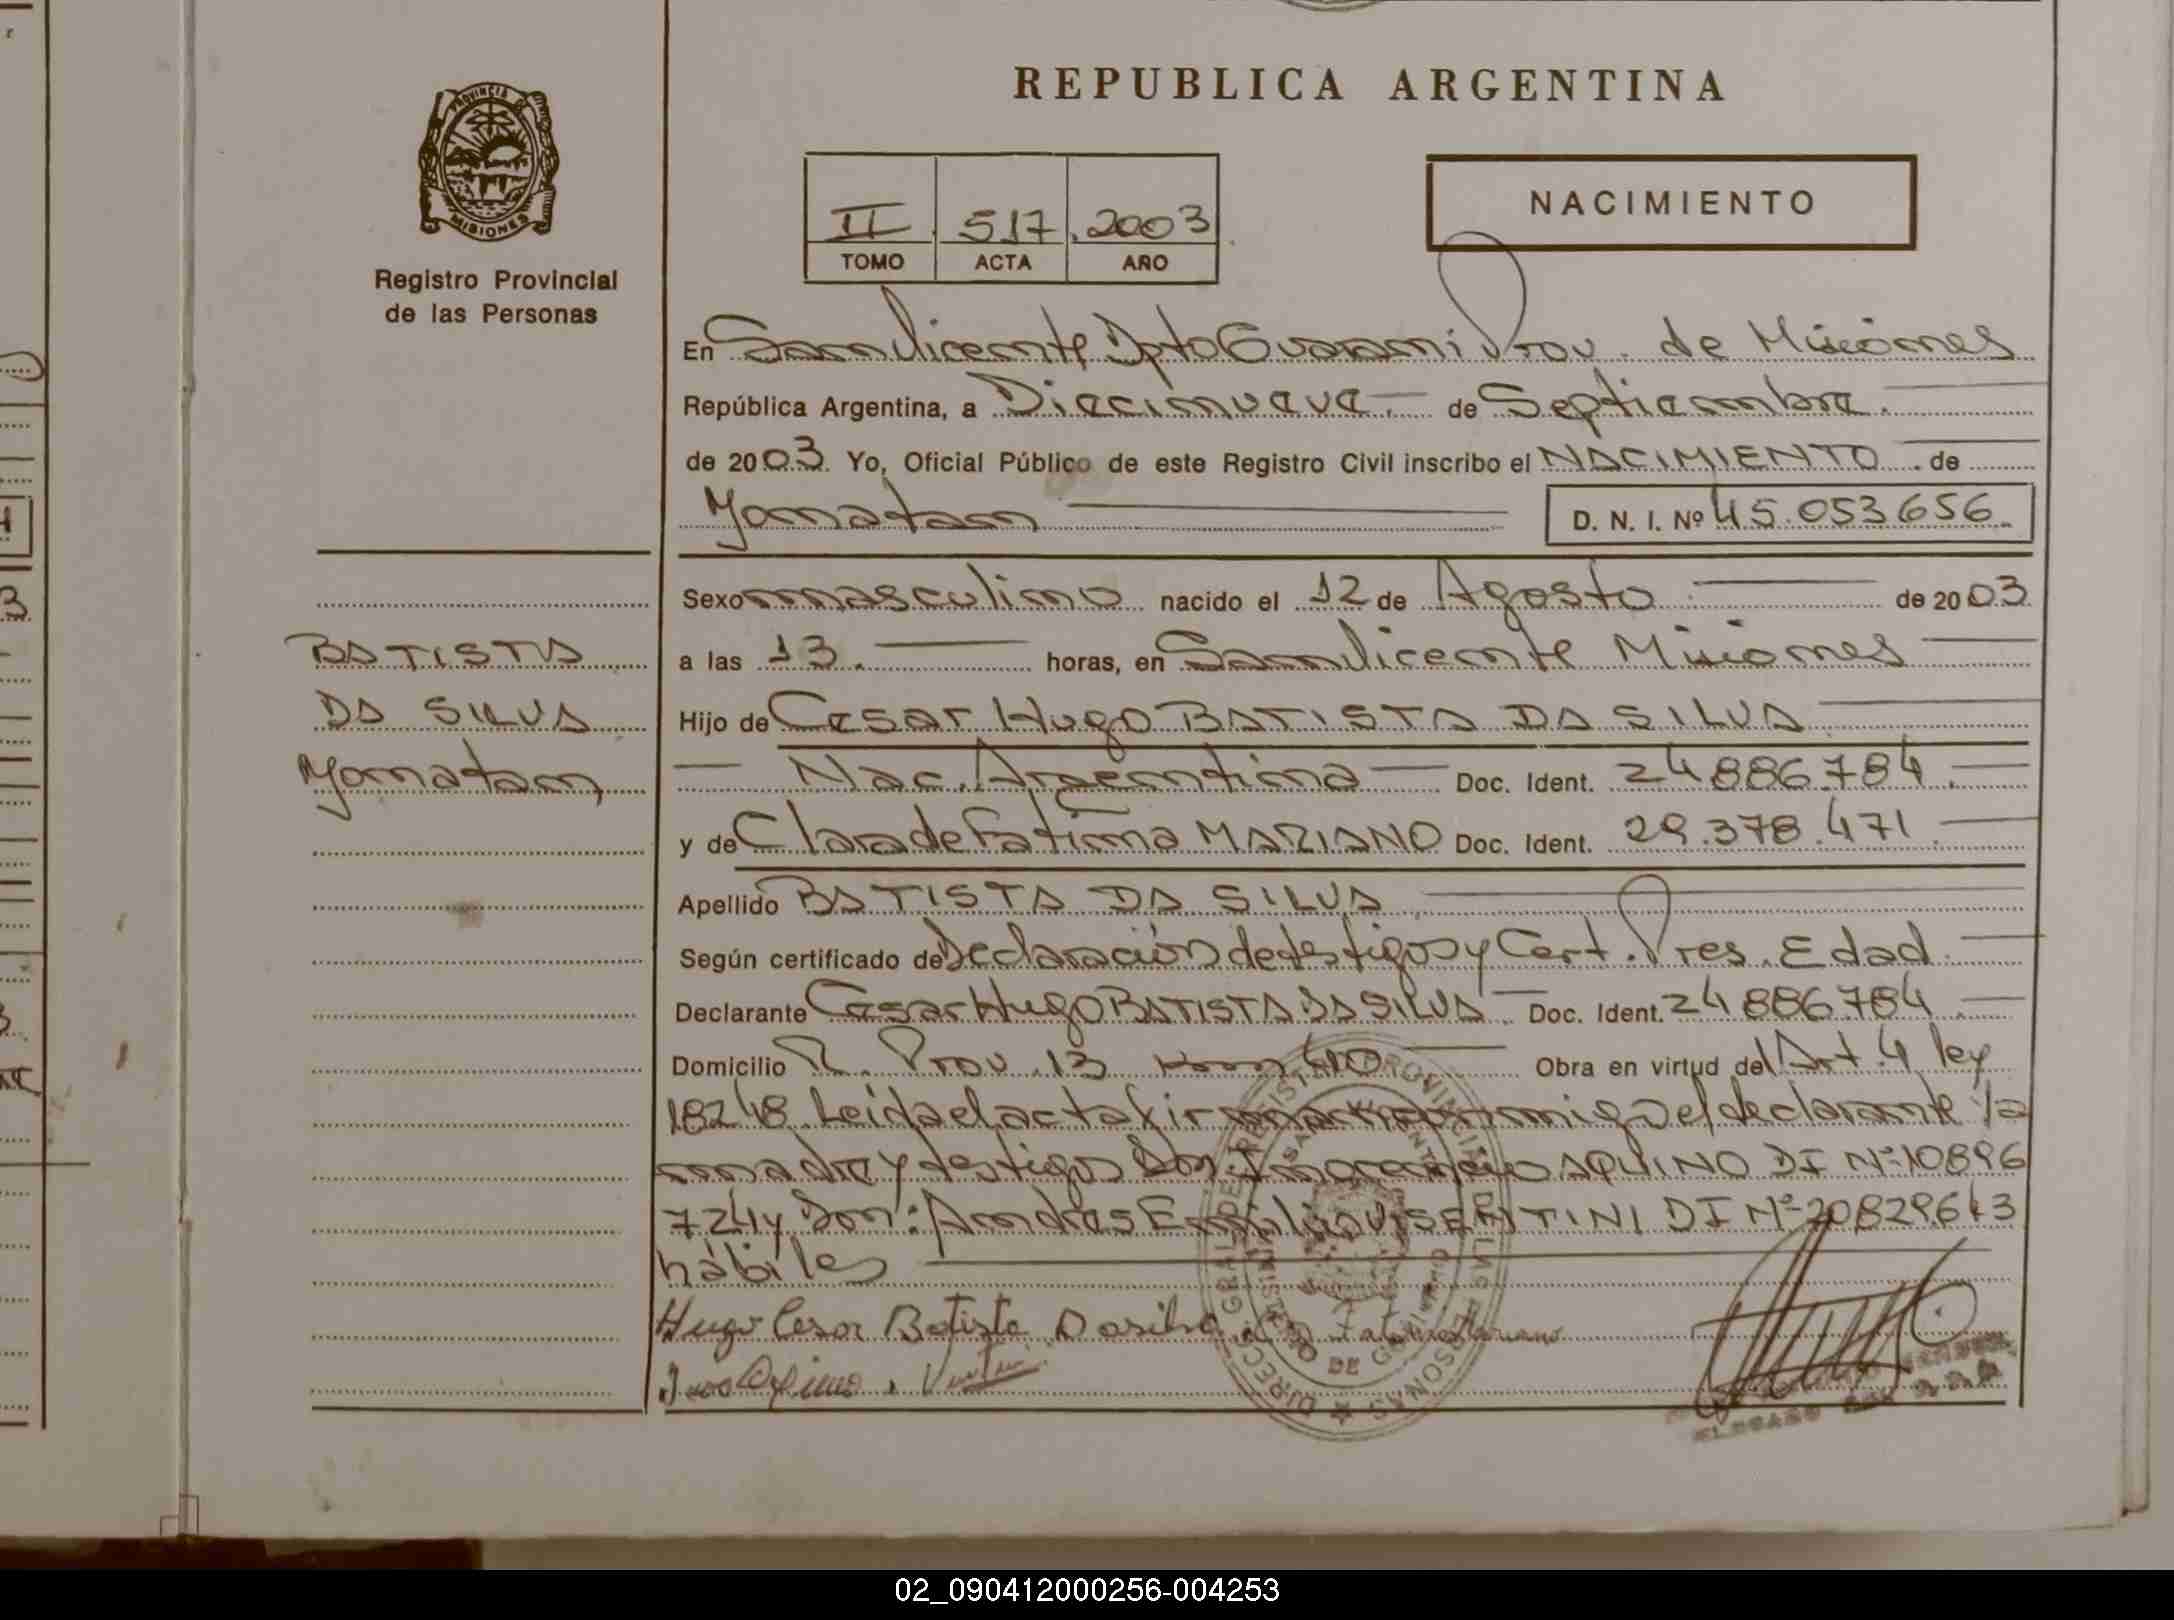 REPUBLICA ARGENTINA
PROVINCIA DE
MISIONES
Registro Provincial
de las Personas
II 517 2003
TOMO ACTA AÑO
NACIMIENTO
En San Vicente Dpto Guarani Prov. de Misiones
República Argentina, a Diecinueve de Septiembre
de 2003 Yo, Oficial Público de este Registro Civil inscribo el NACIMIENTO de
Yonatan
D. N. I. Nº 45.053656
Sexo masculino nacido el 12 de Agosto de 2003
a las 13 horas, en San Vicente Misiones
Hijo de Cesar Hugo BATISTA DA SILVA
Nac. Argentina Doc. Ident. 24886784
y de Clara de Fatima MARIANO Doc. Ident. 29.378.471
Apellido BATISTA DA SILVA
Según certificado de Declaración de testigos y Cert. Pres. Edad
Declarante Cesar Hugo BATISTA DA SILVA Doc. Ident. 24886784
Domicilio R. Prov. 13 Km 40 Obra en virtud del Art. 4 ley
18248. Leida el acta firman conmigo el declarante la
madre y testigos Don: AQUINO DI Nº 10896
724 y Don: Andres Emilio DI Nº 20829613
hábiles
Hugo Cesar Batista Dasilva Fatima Mariano
BATISTA
DA SILVA
Yonatan
02_090412000256-004253